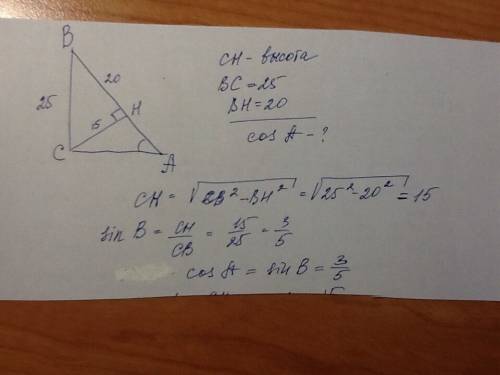 B
20
25
H
5
C
A
CH - высота
BC = 25
BH = 20
cos A - ?
CH = √CB² - BH² = √25² - 20² = 15
sin B = CH/CB = 15/25 = 3/5
cos A = sin B = 3/5